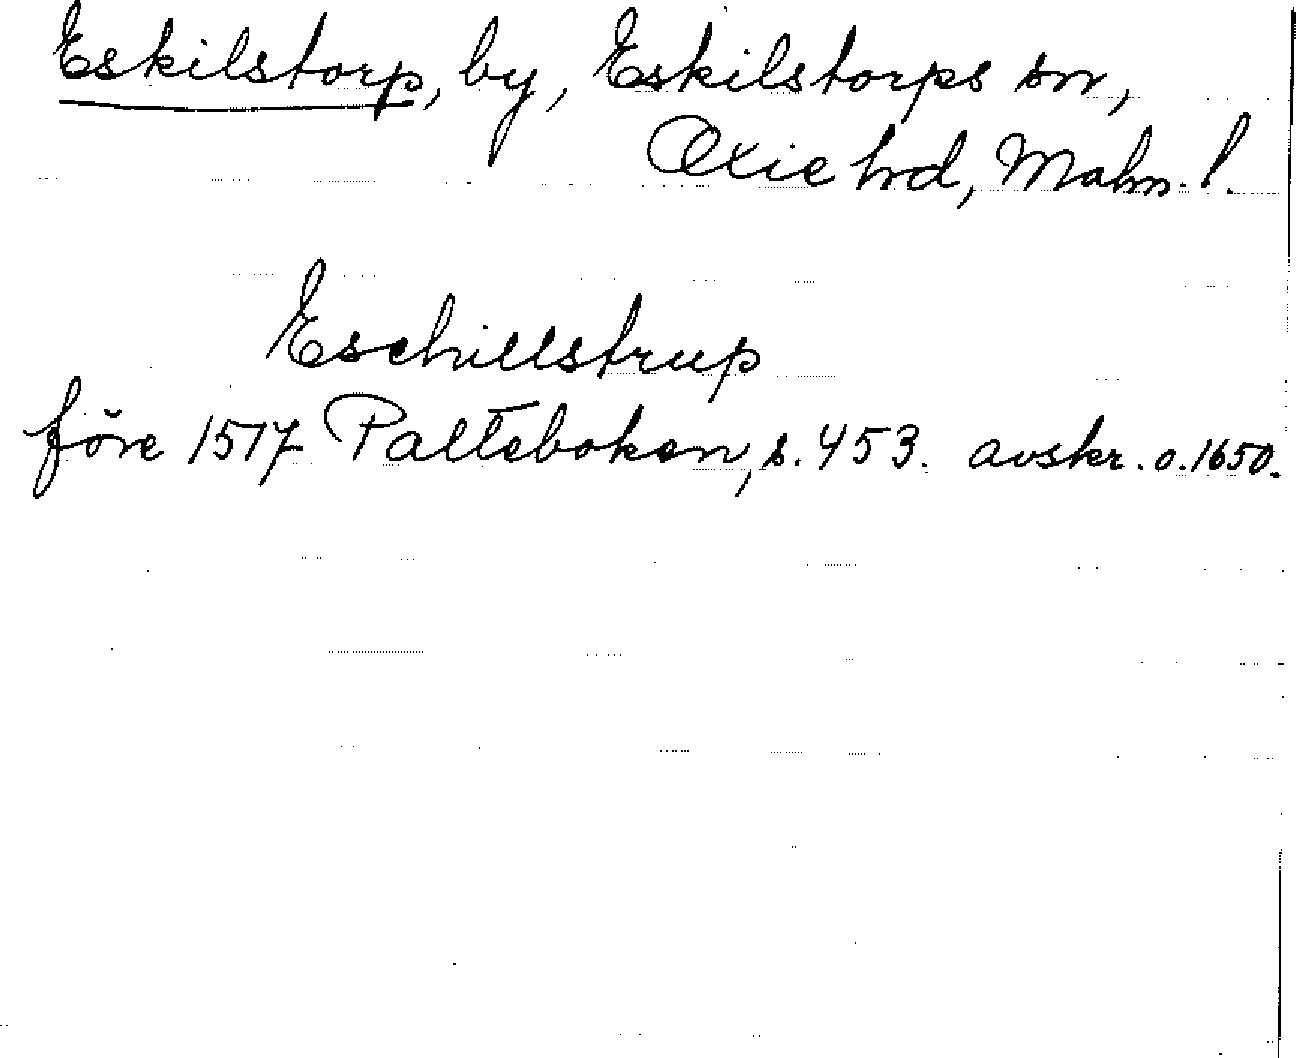 Eskilstorp, by, Eskilstorps sn,
Oxie hrd, Malm. l.
Eschillstrup
före 1517 Palteboken, s. 453. avskr. o. 1650.